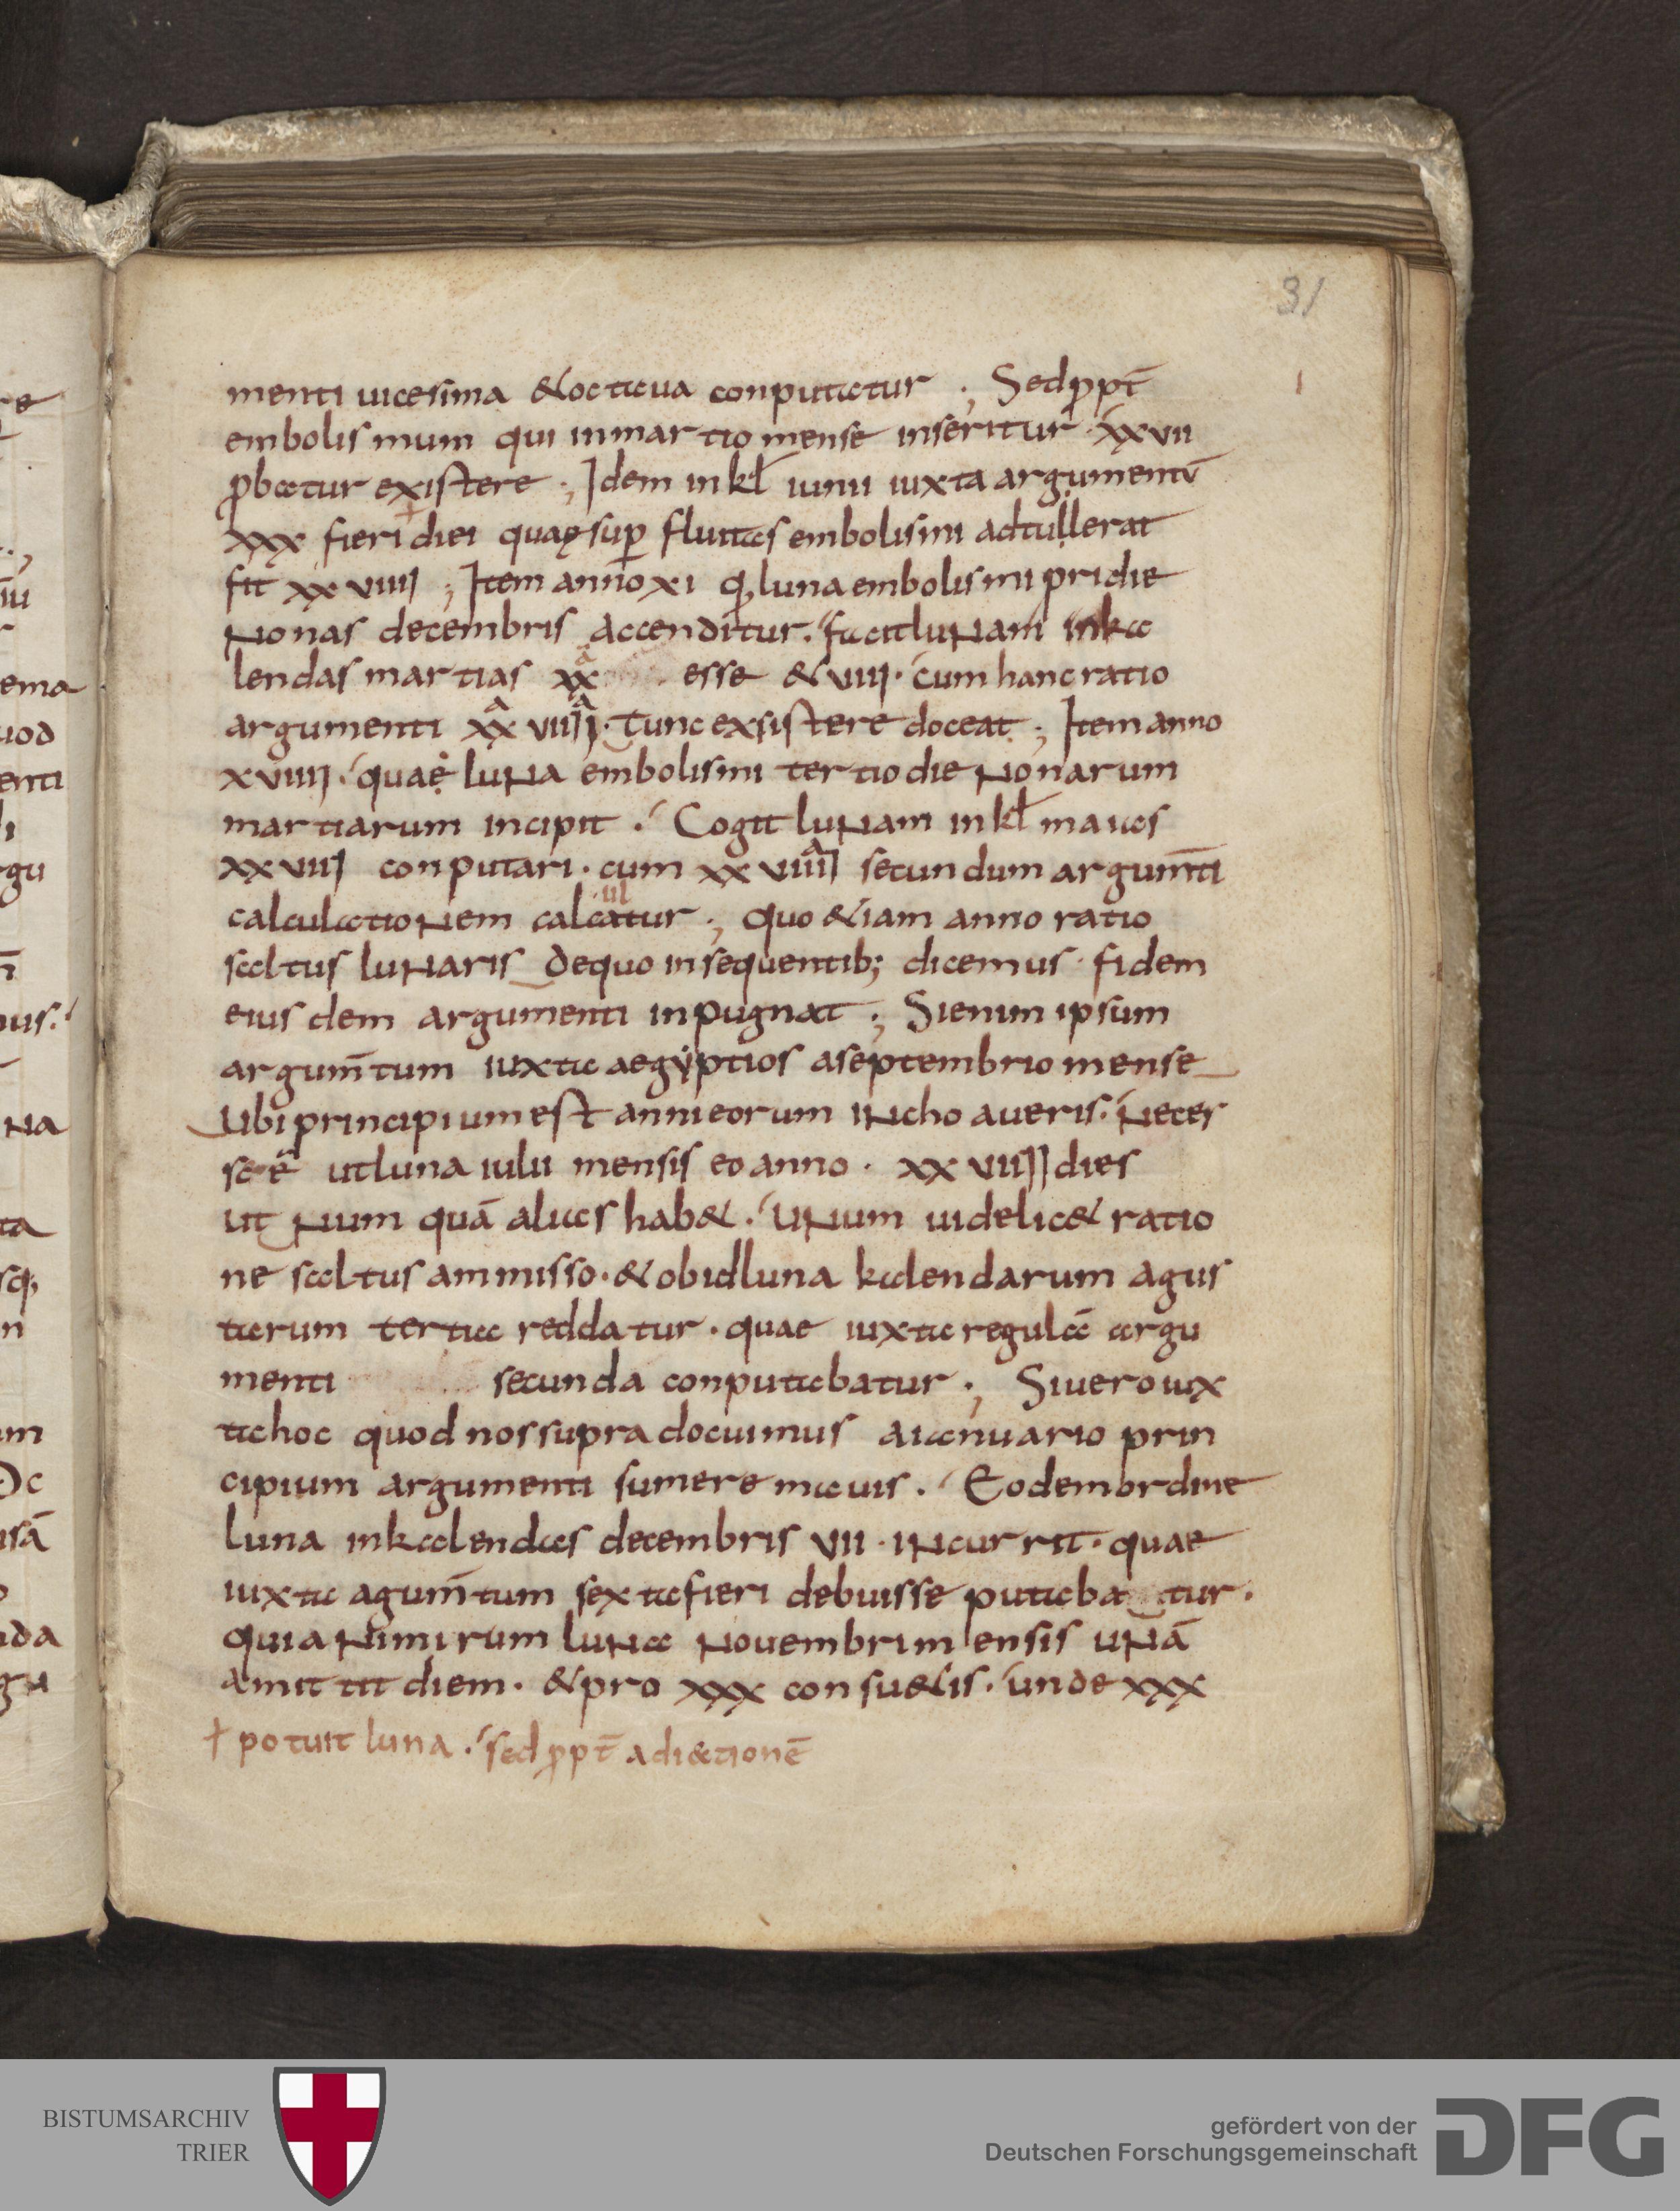 31
menti uicesima & octaua conputatur ; Sed ꝓpt̄
embolismum qui in martio mense inseritur xxvii
ꝓbatur existere ; Idem in kł iunii iuxta argumentū
xxx fieri diei quę suꝑ fluitas embolismi adtullerat
fit xxviiii ; Item anno xi q; luna embolismi pridie
Nonas decembris accenditur. facit luNam in ka
lendas martias xx esse & viiii. cum hanc ratio
argumenti xx viiii. Tunc exsistere doceat ; Item anno
xviiii. quae luNa embolismi tertio die Nonarum
martiarum incipit. Cogit luNam in kł maias
xxviii conputari. cum xxviiii secundum argum̄ti
calculatioNem calcatur ; quo &iam anno ratio
saltus luNaris dequo insequentib; dicemus. fidem
eiusdem argumenti inpugnat ; Si enim ipsum
argum̄tum iuxta aegyptios a septembrio mense
Ubi principium est anni eorum iNchoaueris. Neces
se ē ut luna iulii mensis eo anno. xxviiii dies
ut Nium quā alias hab&. uNum uidelic& ratio
ne saltus ammisso. & ob id luna kalendarum agus
tarum tertia reddatur. quae iuxta regulā argu
menti secunda conputabatur ; Si uero iux
ta hoc quod nos supra docuimus a ianuario prin
cipium argumenti sumere mauis. Eodem ordine
luna in kalendas decembris vii. iNcurrit. quae
iuxta agum̄tum sexta fieri debuisse putaba tur.
quia Nimirum luNa Nouembri mensis uNā
amittit diem. & pro xxx consu&is. unde xxx
+ potuit luna. sed ꝓpt̄ adi&tionē
re
ema
uod
enti
li
rgu
Na
ta
sq;
n
um
usā
nda
gu
BISTUMSARCHIV
TRIER
gefördert von der
Deutschen Forschungsgemeinschaft
DFG